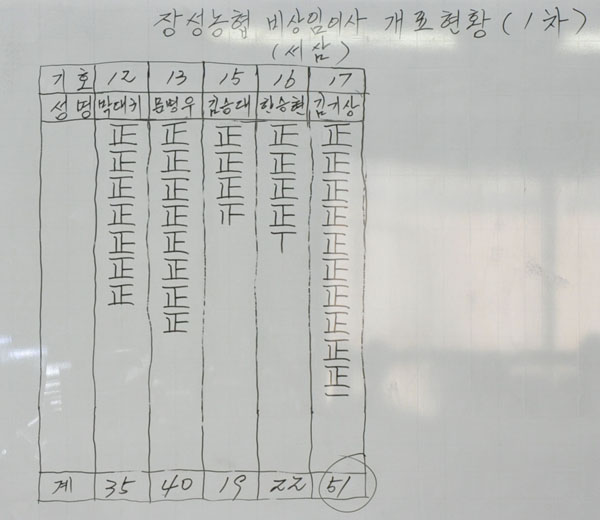 장성농협 비상임이사 개표현황 (1차)
(서삼)
기호 12 13 15 16 17
성명 문병우 김승대 한승현 김기상
正 正 正 正 正
正 正 正 正 正
正 正 正 正 正
正 正 正 正
正 正 丅 正
正 正 正
正 正 正
正 正
正
正
一
계 35 40 19 22 51